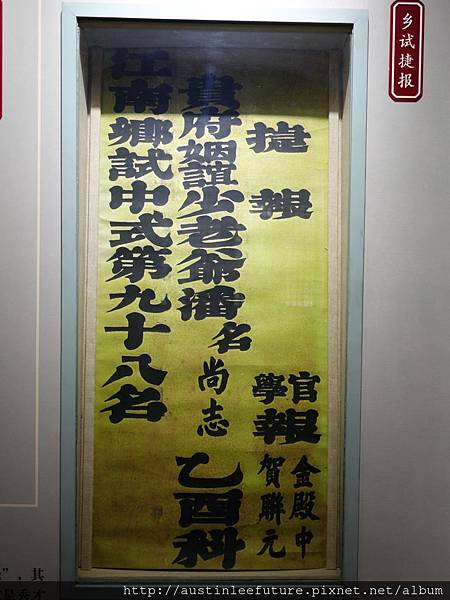 乡试捷报
捷報
官學報
金殿中
賀聯元
貴府姻誼少老爺潘名尚志乙酉科
江南鄉試中式第九十八名
”，其
http://austinleefuture.pixnet.net/album